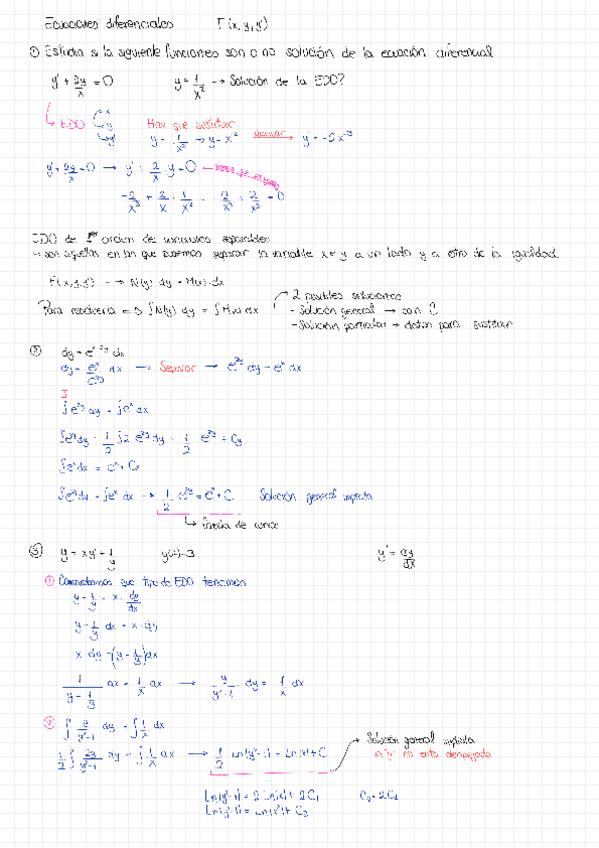 Ecuaciones diferenciales F(x, y, y')
① Estudia si la siguiente funciones son o no solución de la ecuación diferencial
y' + 2y/x = 0 y = 1/x² → Solución de la EDO?
↳ EDO x y y' Hay que sustituir
y = 1/x² → y = x⁻² derivar y' = -2x⁻³
y' + 2y/x = 0 → y' + 2/x · y = 0
-2/x³ + 2/x · 1/x² = -2/x³ + 2/x³ = 0
EDO de 1er orden de variables separables
↳ son aquellas en las que podemos separar la variable x e y a un lado y a otro de la igualdad.
F(x,y,y') → N(y) dy = M(x) dx
Para resolverla => ∫N(y) dy = ∫M(x) dx
2 posibles soluciones
- Solución general → con C
- Solución particular → datos para sustituir
② dy = eˣ⁻²ʸ dx
dy = eˣ/e²ʸ dx → Separar → e²ʸ dy = eˣ dx
∫e²ʸ dy = ∫eˣ dx
∫e²ʸ dy = 1/2 ∫2 e²ʸ dy = 1/2 e²ʸ + Cy
∫eˣ dx = eˣ + Cx
∫e²ʸ dy = ∫eˣ dx → 1/2 e²ʸ = eˣ + C Solución general implícita
↳ Familia de curvas
③ y = xy' + 1/y y' = dy/dx
① Comprobamos que tipo de EDO tenemos
y - 1/y = x · dy/dx
y - 1/y dx = x · dy
x dy = (y - 1/y) dx
→ y/y²-1 dy = 1/x dx
② ∫ y/y²-1 dy = ∫ 1/x dx
1/2 ∫ 2y/y²-1 dy = ∫ 1/x dx → 1/2 Ln|y²-1| = Ln|x| + C
Solución general implícita
la "y" no está despejada
Ln|y²-1| = 2 Ln|x| + 2C₁ C₂ = 2C₁
Ln|y²-1| = Ln|x²| + C₂